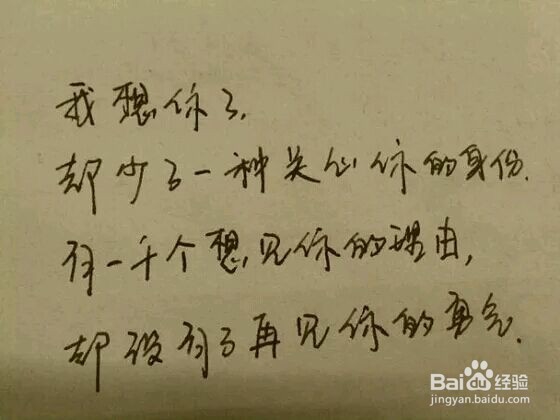 我想你了,
却少了一种关心你的身份.
有一千个想见你的理由,
却没有了再见你的勇气.
Bai du 经验
jingyan.baidu.com